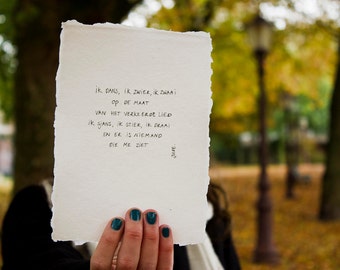 ik dans, ik zwier, ik zwaai
op de maat
van het verkeerde lied
ik sjans, ik stier, ik draai
en er is niemand
die me ziet